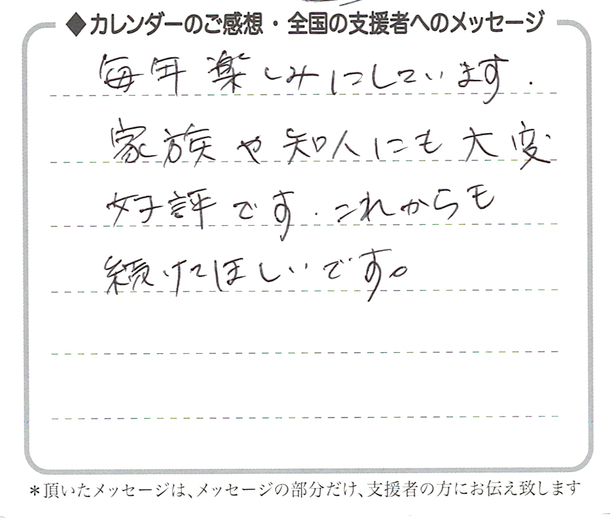 ◆カレンダーのご感想・全国の支援者へのメッセージ
毎年楽しみにしています.
家族や知人にも大変
好評です.これからも
続けてほしいです。
＊頂いたメッセージは、メッセージの部分だけ、支援者の方にお伝え致します